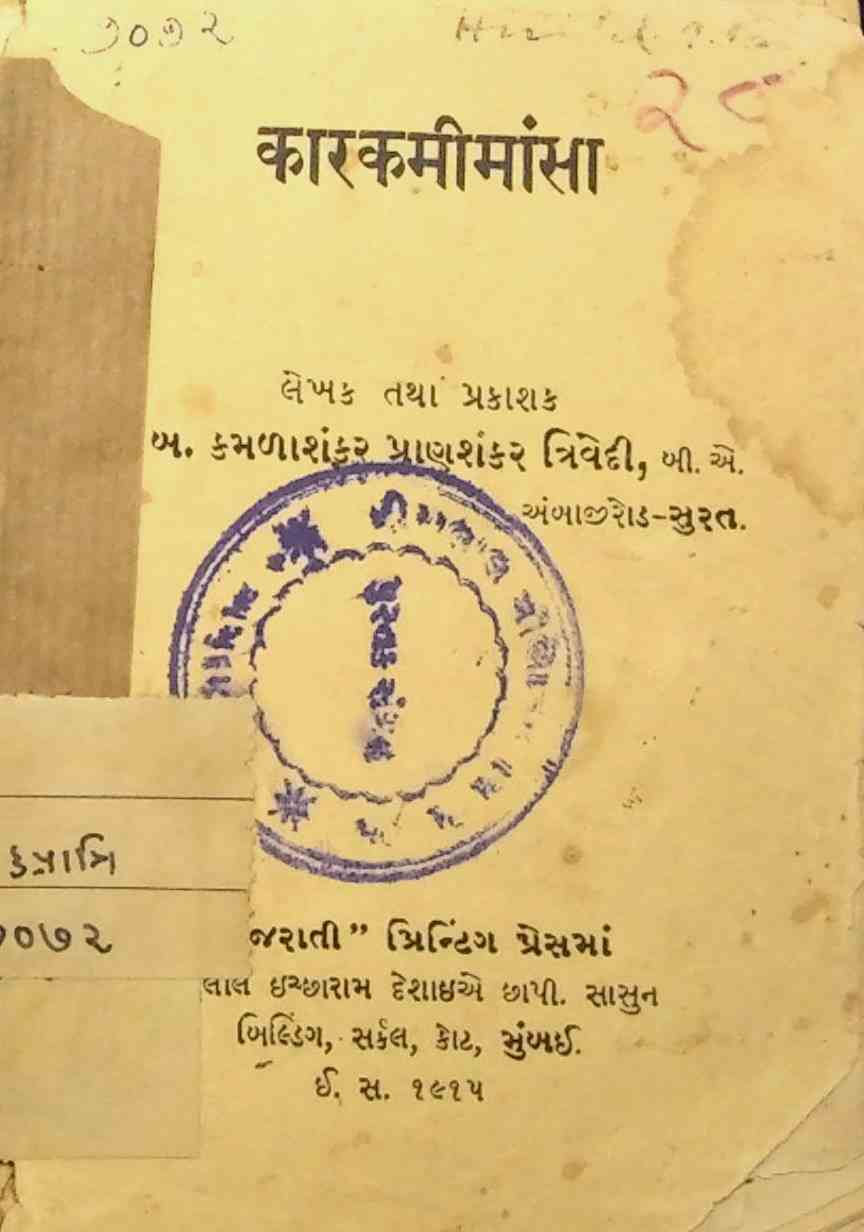 ૭૦૭૨
૨૮
कारकमीमांसा
લેખક તથા પ્રકાશક
બ. કમળાશંકર પ્રાણશંકર ત્રિવેદી, બી. એ.
અંબાજીરોડ–સુરત.
પુસ્તકાલય
કત્રાત્રિ
૭૦૭૨
જરાતી” પ્રિન્ટિંગ પ્રેસમાં
લાલ ઇચ્છારામ દેશાઇએ છાપી. સાસુન
બિલ્ડિંગ, સર્કલ, કોટ, મુંબઈ.
ઈ. સ. ૧૯૧૫